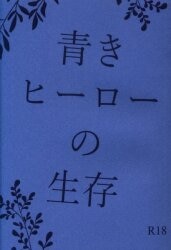 青き
ヒーロー
の
生存
R18